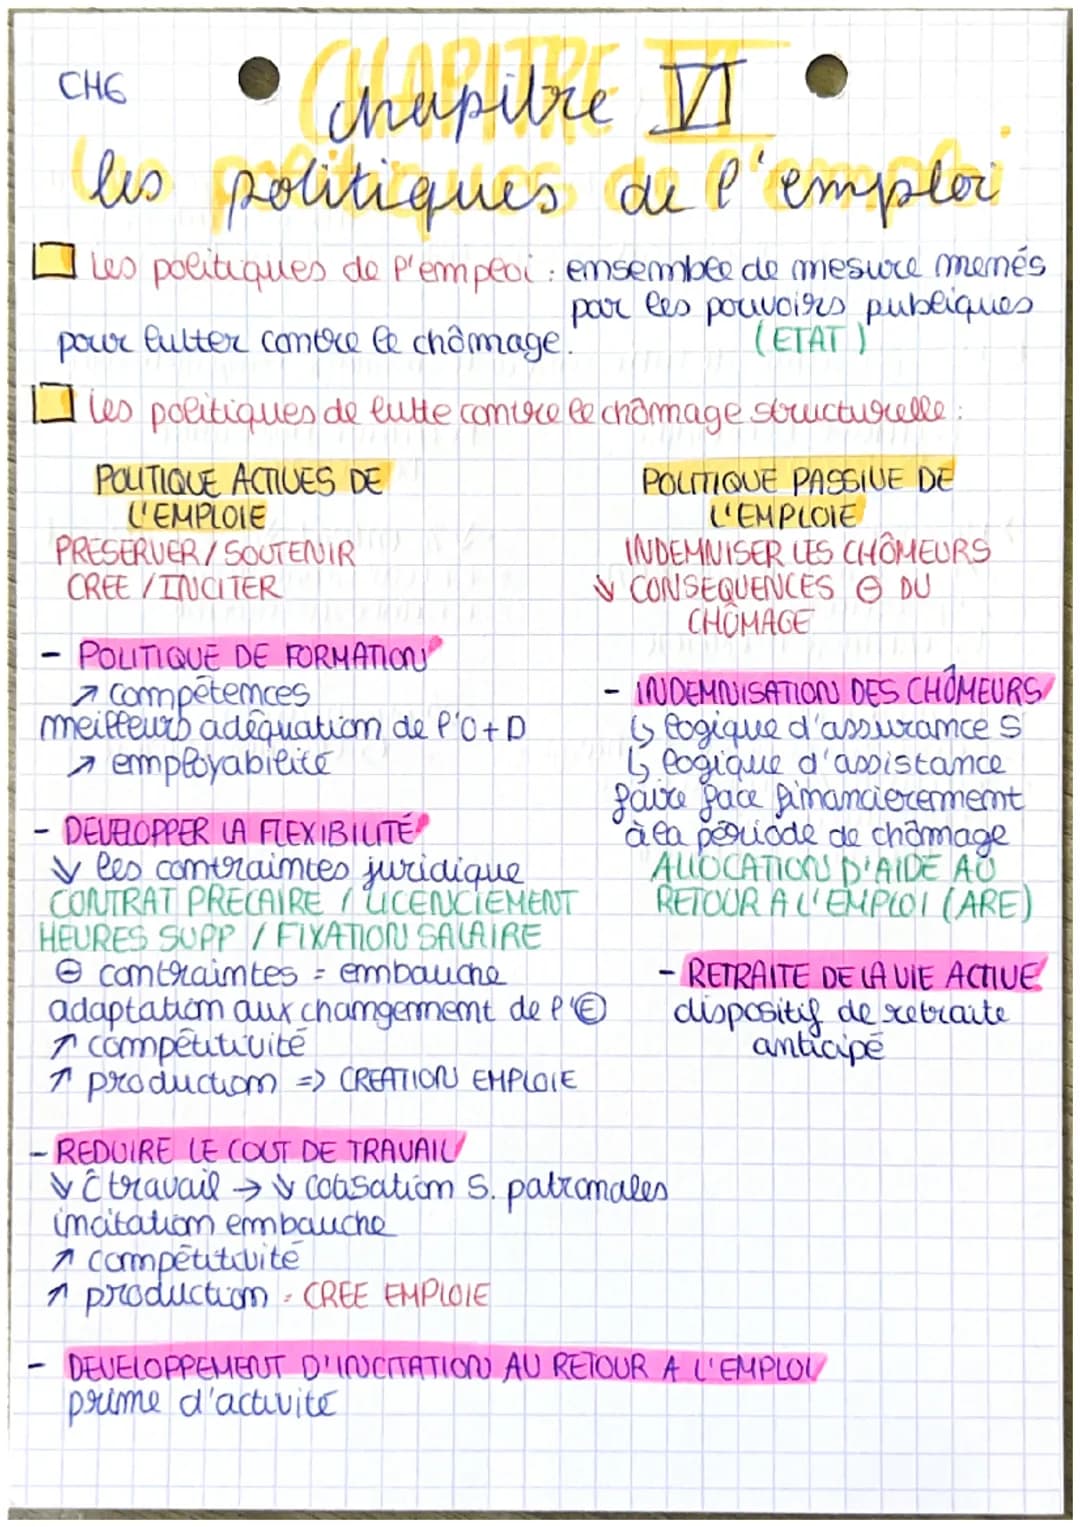 CH6
CHAPITRE VI
chapitre VI
les politiques de l'emploi
les politiques de l'emploi
Les politiques de l'emploi : ensemble de mesure menés
par les pouvoirs publiques
pour lutter contre le chômage.
(ETAT)
Les politiques de lutte contre le chômage structurelle :
POLITIQUE ACTIVES DE
L'EMPLOIE
PRESERVER / SOUTENIR
CREE / INCITER
- POLITIQUE DE FORMATION
↗ compétences
meilleurs adéquation de l'O+D
↗ employabilité
- DEVELOPPER LA FLEXIBILITÉ
↘ les contraintes juridique
CONTRAT PRECAIRE / LICENCIEMENT
HEURES SUPP / FIXATION SALAIRE
⊖ contraintes = embauche
adaptation aux changement de l'Ⓔ
↗ compétitivité
↗ production => CREATION EMPLOIE
- REDUIRE LE COUT DE TRAVAIL
↘ Ĉ travail → ↘ cotisation S. patronales
incitation embauche
↗ compétitivité
↗ production = CREE EMPLOIE
- DEVELOPPEMENT D'INCITATION AU RETOUR A L'EMPLOI
prime d'activité
POLITIQUE PASSIVE DE
L'EMPLOIE
INDEMNISER LES CHÔMEURS
↘ CONSEQUENCES ⊖ DU
CHÔMAGE
- INDEMNISATION DES CHÔMEURS
↳ logique d'assurance S
↳ logique d'assistance
faire face financierement
à la période de chômage
ALLOCATION D'AIDE AU
RETOUR A L'EMPLOI (ARE)
- RETRAITE DE LA VIE ACTIVE
dispositif de retraite
anticipé